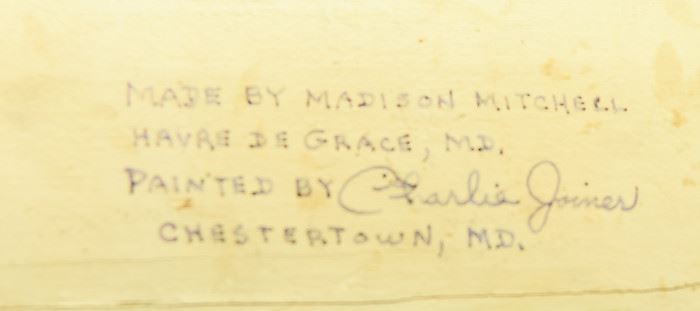 MADE BY MADISON MITCHELL
HAVRE DE GRACE, MD.
PAINTED BY Charlie Joiner
CHESTERTOWN, MD.